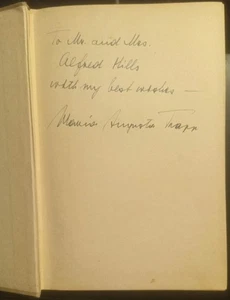 To Mr. and Mrs.
Alfred Hills
with my best wishes —
Maria Augusta Trapp